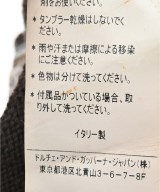 剤をお使いください。
・タンブラー乾燥はしないでく
ださい。
・雨や汗または摩擦による移染
にご注意ください。
・色物は分けて洗ってください。
・付属品がついている場合、取
り外して洗ってください。
イタリー製
ドルチェ・アンド・ガッバーナ・ジャパン(株)
東京都港区北青山3-6-7-8F